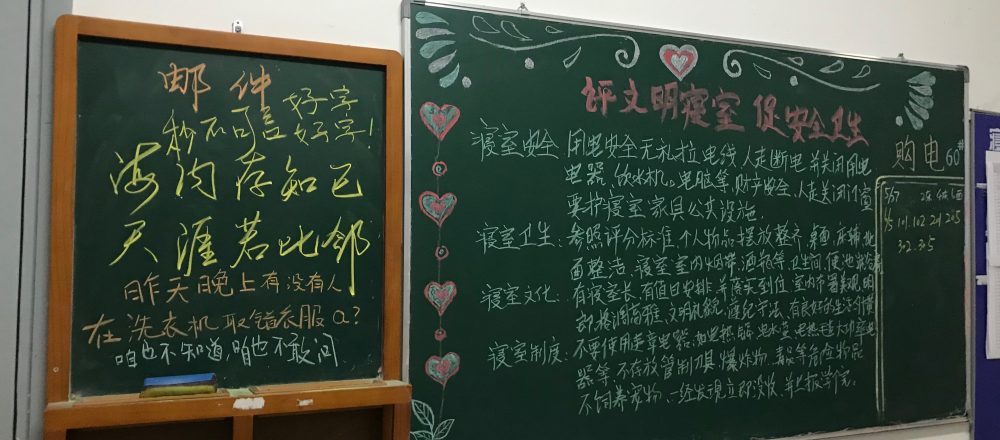 邮件
秒不可言 好字
好字!
海内存知己
天涯若比邻
昨天晚上有没有人
在洗衣机取错衣服a?
咱也不知道,咱也不敢问
评文明寝室 促安全卫生
寝室安全 用电安全无私拉电线 人走断电并关闭用电
电器、饮水机。电脑等,财产安全、人走关闭门窗
要护寝室家具公共设施.
寝室卫生: 参照评分标准,个人物品摆放整齐,桌面,床铺,地
面整洁、寝室室内烟蒂、酒瓶等、卫生间、便池
寝室文化: 有寝室长,有值日安排,并落实到位,室内布置美观,
部格调高雅、文明礼貌、遵纪守法、有良好的生活习惯
寝室制度: 不要使用违章电器,如电热锅、电水壶、电热毯大功率电
器等、不存放管制刀具、爆炸物、毒品等危险物品
不饲养宠物、一经发现立即没收、并上报学院。
购电 60#
5/17
101.102 201 205
302.305